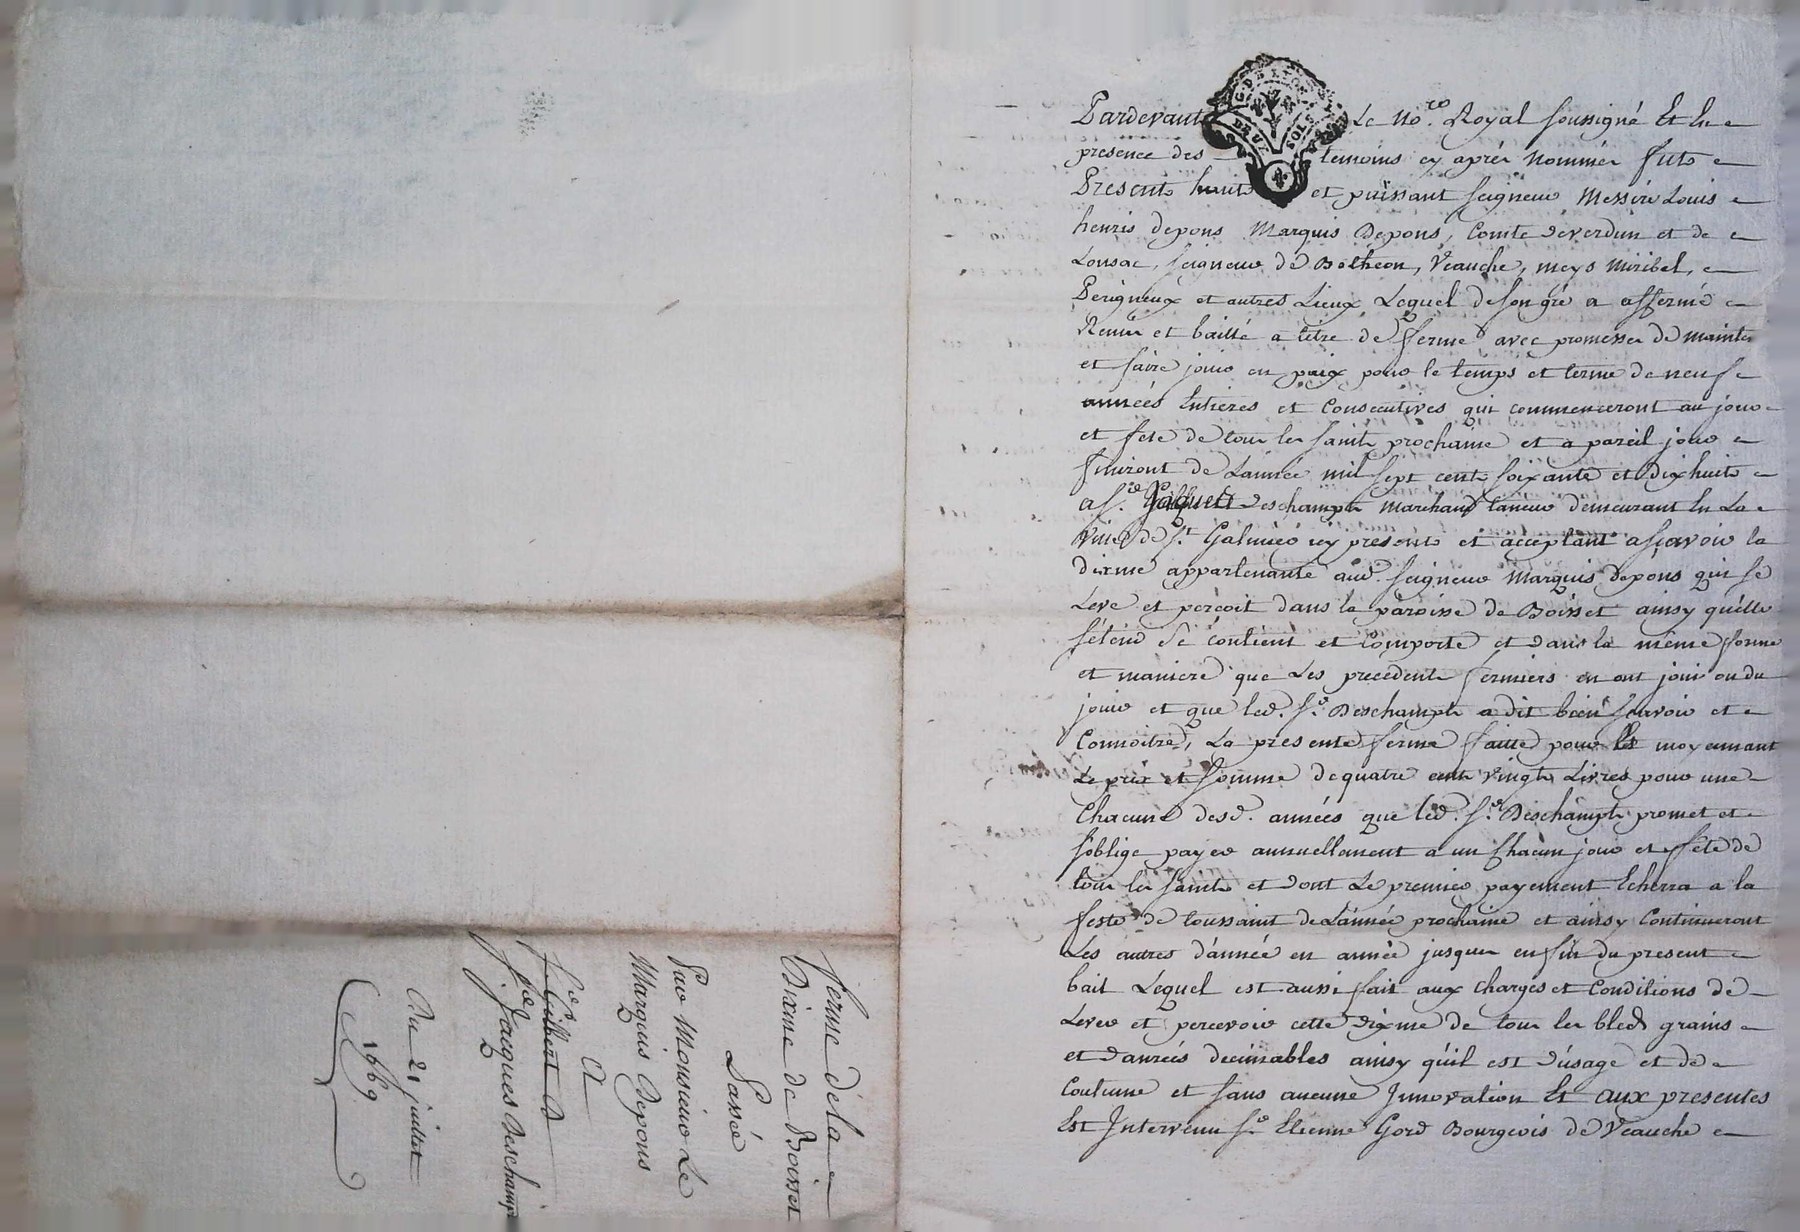 Pardevant Le No.re Royal soussigné Et En
presence des temoins cy aprés Nommés fut
Present haut et puissant seigneur Messire Louis
henris depons Marquis Depons, Comte deverdun et de
Lonsac, seigneur de Botheon, Veauche, meys miribel,
Perigneux et autres Lieux Lequel de son gré a affermé
Remis et baillé a titre de ferme avec promesses de mainter
et faire jouir en paix pour le temps et terme de neuf
années Entieres et Consecutives qui commenceront au jour
et fete de tous les saints prochaine et a pareil jour
finiront de L'année mil sept cent soixante et dix huit
a S.r Jaques deschamps Marchand taneur demeurant En La
Ville de S.t Galmier icy present et acceptant asçavoir la
dixme appartenante aud. seigneur Marquis depons qui se
Leve et perçoit dans la paroisse de Boisset ainsy qu'elle
s'étend se contient et comporte et dans la même forme
et maniere que Les precedents fermiers en ont joui ou du
jouir et que led. S.r Deschamps a dit bien sçavoir et
Connoitre, La presente ferme faitte pour les moyennant
Le prix et somme de quatre cent vingt Livres pour une
Chacune desd. années que led. S.r Deschamps promet et
s'oblige payer annuellement a un chacun jour et fete de
tous les saints et dont Le premier payement Echerra a la
feste de toussaint de L'année prochaine et ainsy Continueront
Les autres d'année en année jusques en fin du present
bail Lequel est aussi fait aux Charges et Conditions de
Lever et percevoir cette dixme de tous les bleds grains
et danrées decimables ainsy qu'il est d'usage et de
Coutume et sans aucune Innovation Et aux presentes
Est Intervenu S.r Etienne Gord Bourgeois de Veauche
ferme de la
Dixme de Boisset
Passée
Par Monsieur Le
Marquis Depons
A
S.r Gilbert D
S.r Jacques Deschamps
Du 21 juillet
1769
G. DE LYON
DEUX SOLS